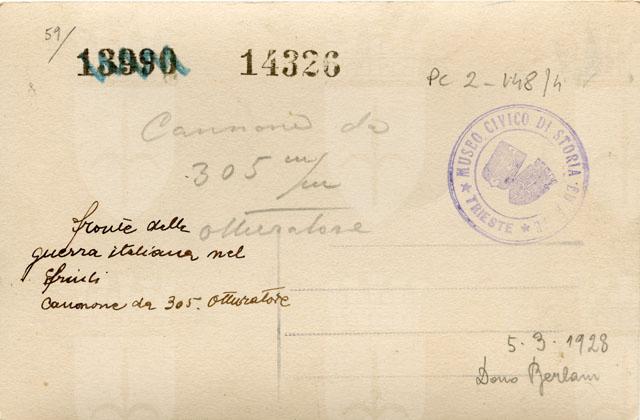 59/
13990 14326
PC 2-148/4
Cannone da
305 m/m
otturatore
MUSEO CIVICO DI STORIA ED
TRIESTE
fronte della
guerra italiana nel
Friuli
Cannone da 305. Otturatore
5.3.1928
Dono Berlam